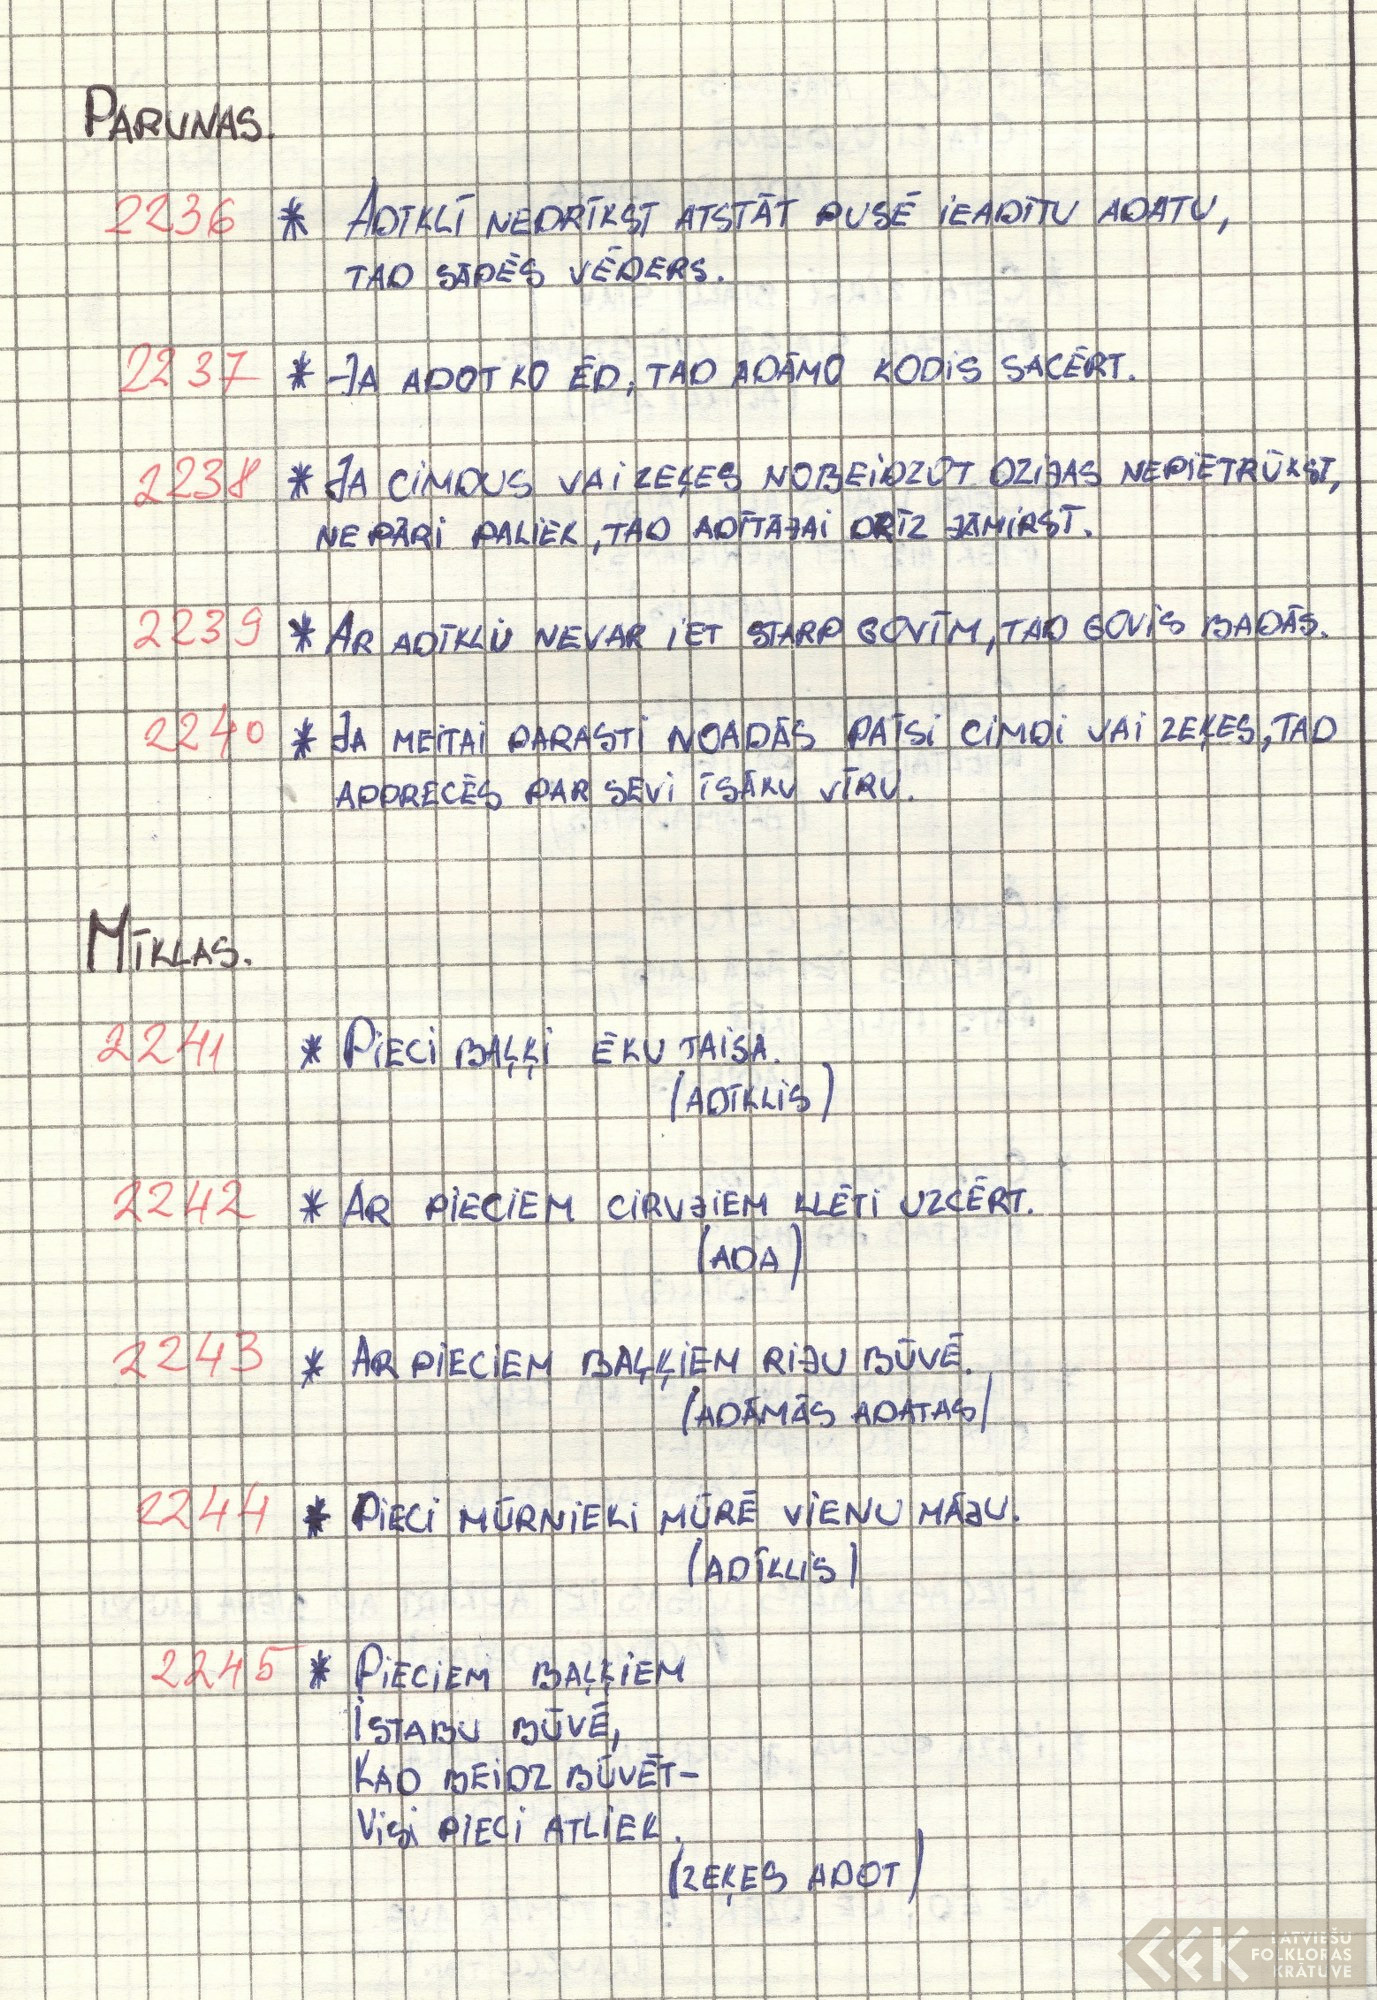 PARUNAS.
2236 * ADĪKLĪ NEDRĪKST ATSTĀT PUSĒ IEADĪTU ADATU,
TAD SĀPĒS VĒDERS.
2237 * JA ADOT KO ĒD, TAD ADĀMO KODIS SACĒRT.
2238 * JA CIMDUS VAI ZEĶES NOBEIDZOT DZIJAS NEPIETRŪKST,
NE PĀRI PALIEK, TAD ADĪTĀJAI DRĪZ JĀMIRST.
2239 * AR ADĪKLU NEVAR IET STARP GOVĪM, TAD GOVIS BADĀS.
2240 * JA MEITAI PARASTI NOADĀS PAĪSI CIMDI VAI ZEĶES, TAD
APPRECĒS PAR SEVI ĪSĀKU VĪRU.
MĪKLAS.
2241 * PIECI BAĻĶI ĒKU TAISA.
(ADĪKLIS)
2242 * AR PIECIEM CIRVJIEM KLĒTI UZCĒRT.
(ADA)
2243 * AR PIECIEM BAĻĶIEM RIJU BŪVĒ.
(ADĀMĀS ADATAS)
2244 * PIECI MŪRNIEKI MŪRĒ VIENU MĀJU.
(ADĪKLIS)
2245 * PIECIEM BAĻĶIEM
ISTABU BŪVĒ,
KAD BEIDZ BŪVĒT-
VISI PIECI ATLIEK.
(ZEĶES ADOT)
LFK LATVIEŠU
FOLKLORAS
KRĀTUVE